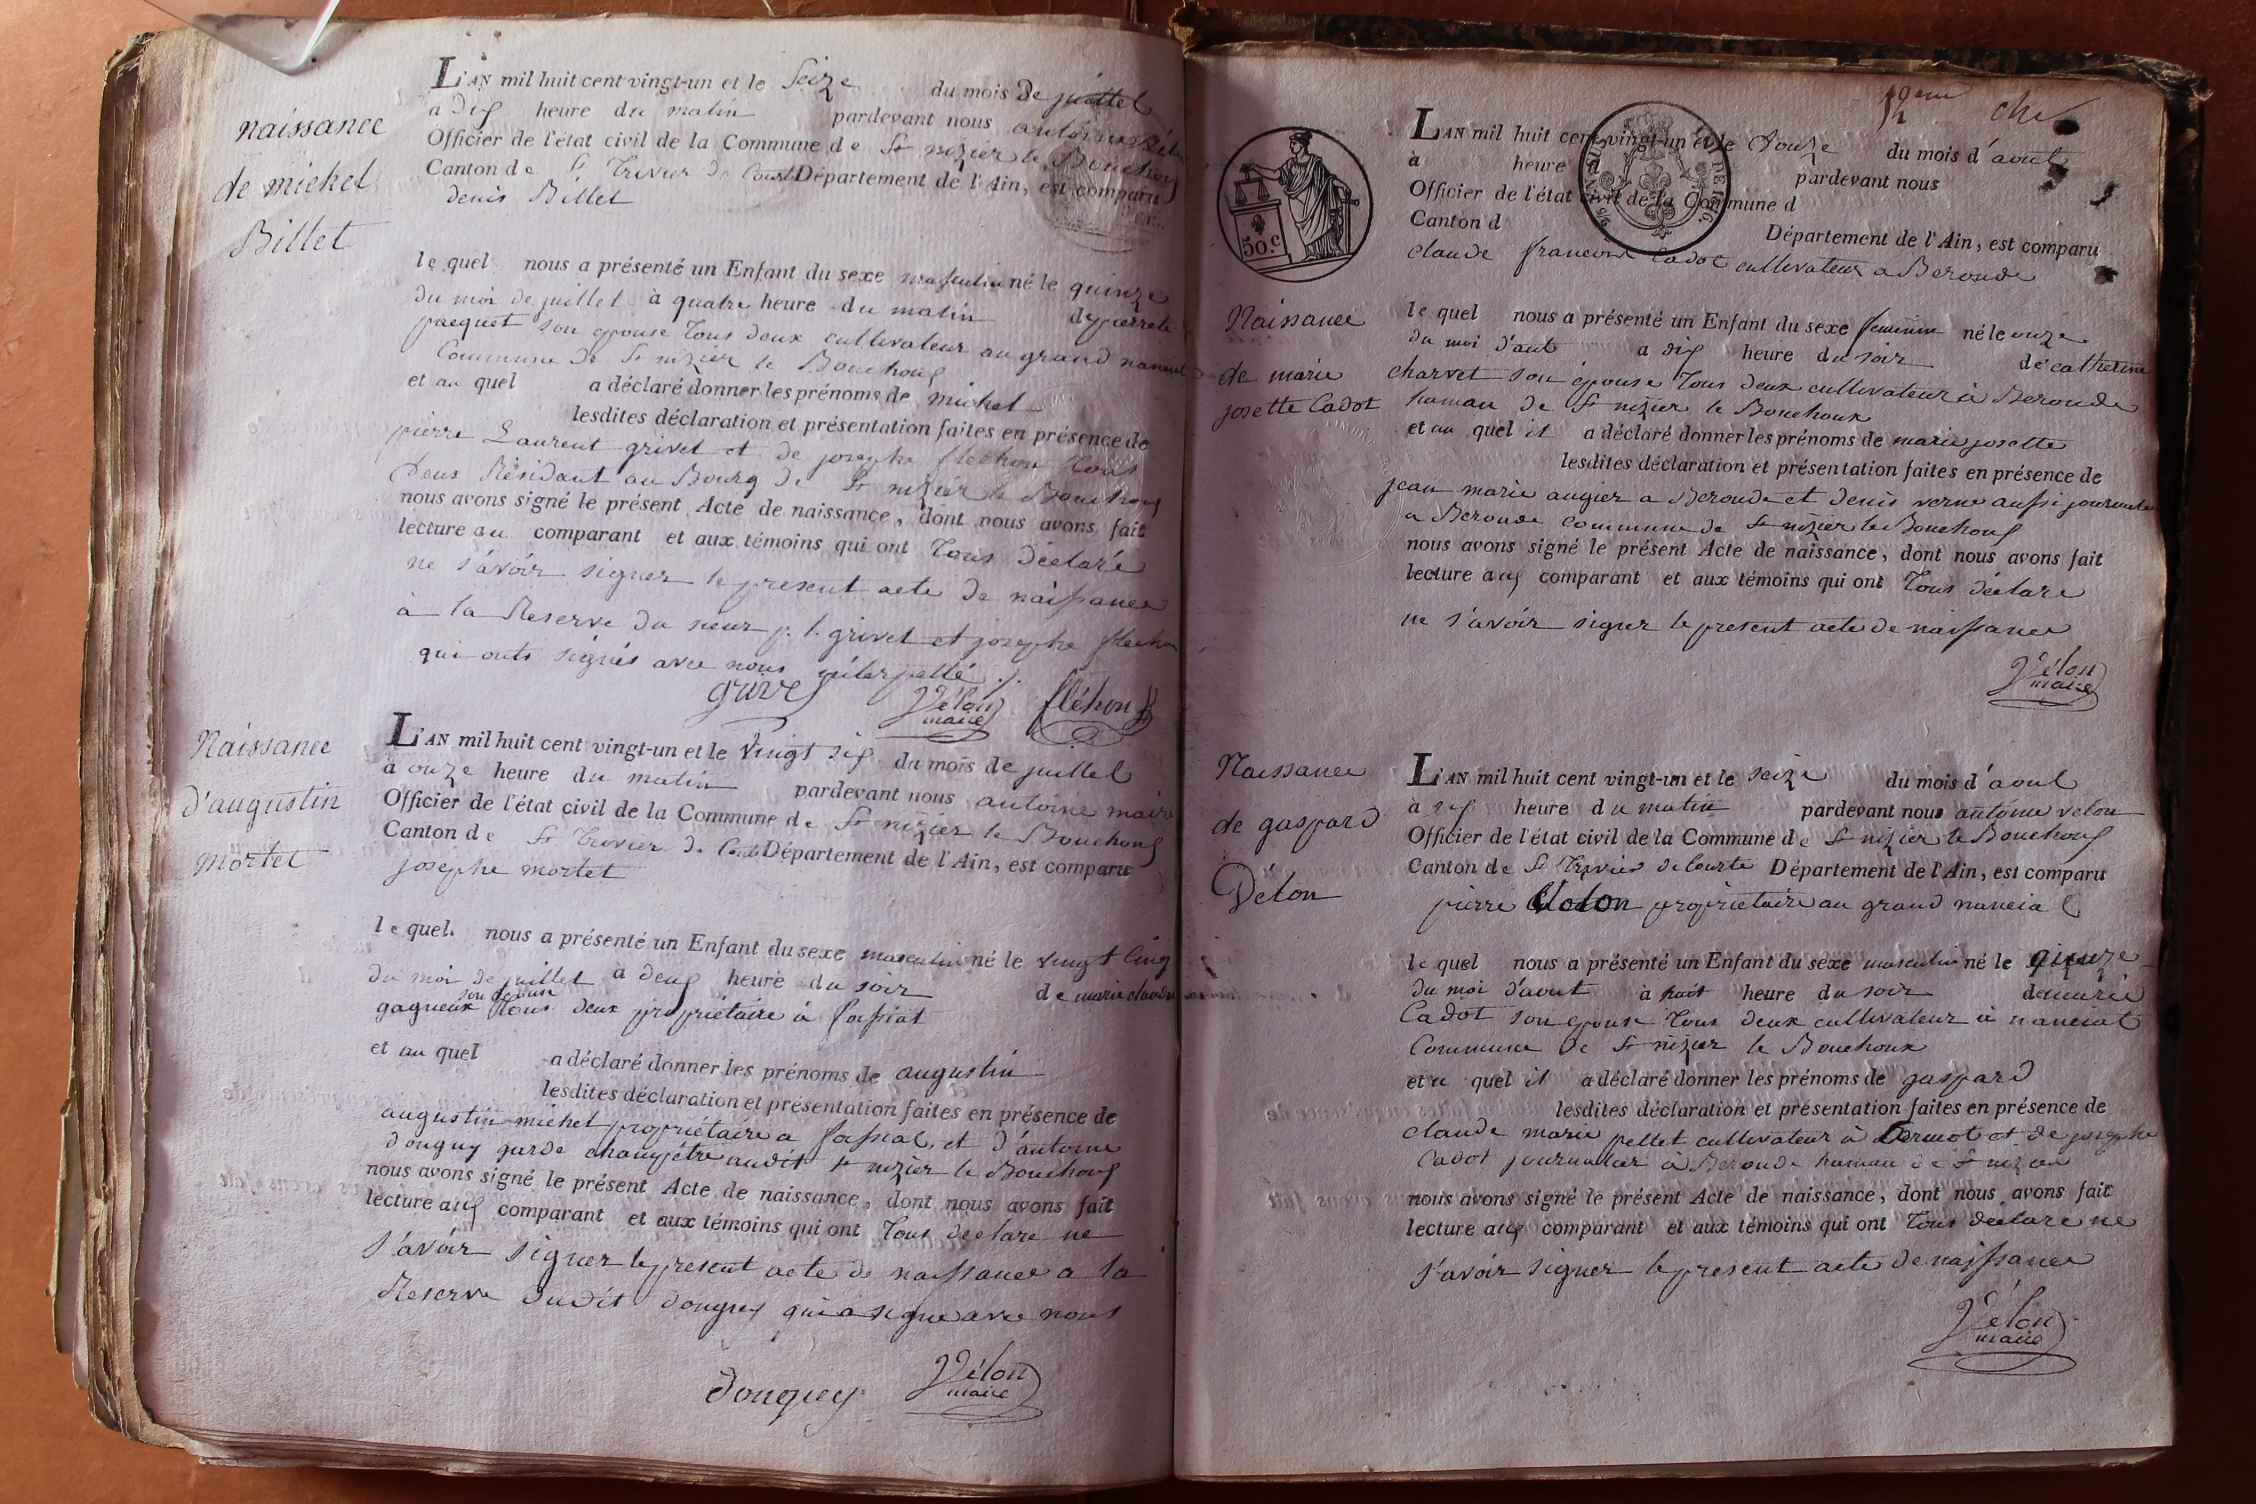 naissance
de michel
Billet
L'AN mil huit cent vingt-un et le Seize du mois de juillet
a dix heure du matin pardevant nous antoine Vélon
Officier de l'état civil de la Commune de St nizier le Bouchoux
Canton de St Trivier de Courtes Département de l'Ain, est comparu
denis Billet
le quel nous a présenté un Enfant du sexe masculin né le quinze
du moi de juillet à quatre heure du matin de pierrete
pacquet son epouse Tous deux cultivateur au grand nanciat
Commune de St nizier le Bouchoux
et au quel a déclaré donner les prénoms de michel
lesdites déclaration et présentation faites en présence de
pierre Laurent grivet et de josephe flechon Tous
deux Résidant au Bourg de St nizier le Bouchoux
nous avons signé le présent Acte de naissance, dont nous avons fait
lecture au comparant et aux témoins qui ont Tous déclaré
ne s'avoir signer le present acte de naissance
à la Reserve du sieur p. l. grivet et josephe flechon
qui onts signés avec nous
grivet Vélon maire fléhon
Naissance
d'augustin
mortet
L'AN mil huit cent vingt-un et le vingt six du mois de juillet
à onze heure du matin pardevant nous antoine maire
Officier de l'état civil de la Commune de St nizier le Bouchoux
Canton de St Trivier de Courtes Département de l'Ain, est comparu
josephe mortet
le quel nous a présenté un Enfant du sexe masculin né le vingt cinq
du moi de juillet à deux heure du soir de marie claudine
son epouse
gagneux Tous deux propriétaire à fassiat
et au quel a déclaré donner les prénoms de augustin
lesdites déclaration et présentation faites en présence de
augustin michel propriétaire a fassiat, et d'antoine
donguy garde champétre audit St nizier le Bouchoux
nous avons signé le présent Acte de naissance, dont nous avons fait
lecture aux comparant et aux témoins qui ont Tous declare ne
s'avoir signer le present acte de naissance a la
Reserve dudit donguy qui a signe avec nous
donguey Vélon maire
12eme
50.c
Naissance
de marie
josette Cadot
L'AN mil huit cent vingt-un et le Douze du mois d'aout
à heure d pardevant nous
Officier de l'état civil de la Commune d
Canton d Département de l'Ain, est comparu
claude francois Cadot cultivateur a Beroude
le quel nous a présenté un Enfant du sexe feminin né le onze
du moi d'aut a dix heure du soir de catherine
charvet son épouse Tous deux cultivateur à Beroude
hamau de St nizier le Bouchoux
et au quel il a déclaré donner les prénoms de marie josette
lesdites déclaration et présentation faites en présence de
jean marie augier a Beroude et denis verne aussi journalier
a Beroude commune de St nizier le Bouchoux
nous avons signé le présent Acte de naissance, dont nous avons fait
lecture aux comparant et aux témoins qui ont Tous déclare
ne s'avoir signer le present acte de naissance
Vélon
maire
Naissance
de gaspard
Vélon
L'AN mil huit cent vingt-un et le seize du mois d'aout
à dix heure du matin pardevant nous antoine velon
Officier de l'état civil de la Commune de St nizier le Bouchoux
Canton de St Trivier de Courte Département de l'Ain, est comparu
pierre Velon propriétaire au grand nanciat
le quel nous a présenté un Enfant du sexe masculin né le quinze
du moi d'avout à huit heure du soir de marie
Cadot son epouse Tous deux cultivateur à nanciat
Commune de St nizier le Bouchoux
et a quel il a déclaré donner les prénoms de gaspard
lesdites déclaration et présentation faites en présence de
claude marie pellet cultivateur à Cermot et de josephe
Cadot journalier à Beroude hamau de St nizier
nous avons signé le présent Acte de naissance, dont nous avons fait
lecture aux comparant et aux témoins qui ont Tous déclare ne
s'avoir signer le present acte de naissance
Vélon
maire